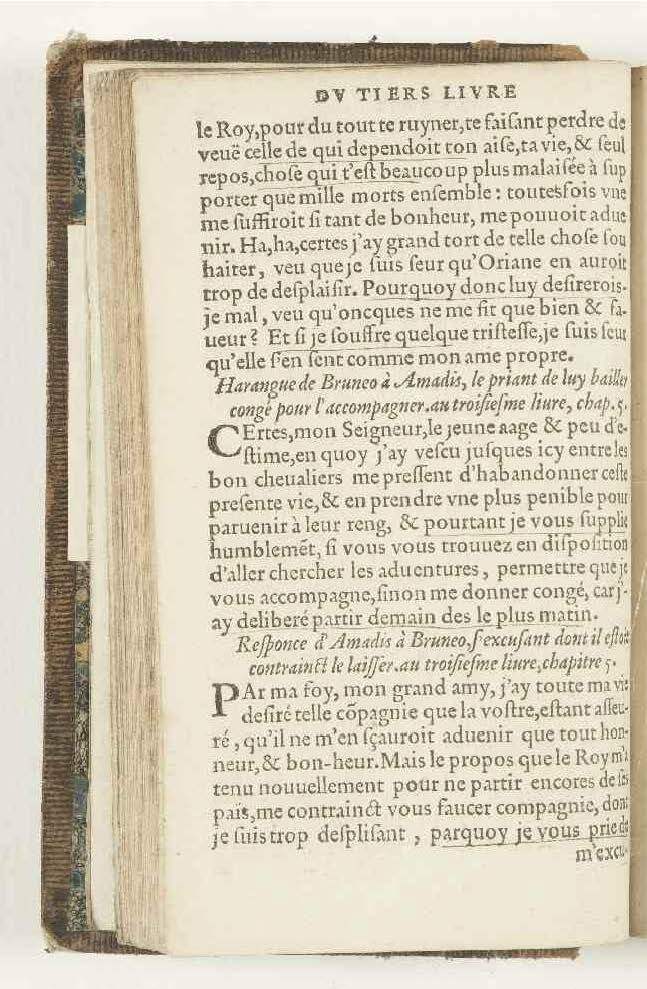 DV TIERS LIVRE
le Roy,pour du tout te ruyner,te faiſant perdre de
veuë celle de qui dependoit ton aiſe,ta vie,& ſeul
repos,choſe qui t'eſt beaucoup plus malaiſée à ſup
porter que mille morts enſemble : toutesfois vne
me ſuffiroit ſi tant de bonheur, me pouuoit adue
nir. Ha,ha,certes j'ay grand tort de telle choſe ſou
haiter, veu que je ſuis ſeur qu'Oriane en auroit
trop de deſplaiſir. Pourquoy donc luy deſirerois-
je mal, veu qu'oncques ne me fit que bien & fa-
ueur? Et ſi je ſouffre quelque triſteſſe,je ſuis ſeur
qu'elle s'en ſent comme mon ame propre.
Harangue de Bruneo à Amadis, le priant de luy bailler
congé pour l'accompagner.au troiſieſme liure, chap. 5.
CErtes,mon Seigneur,le jeune aage & peu d'e-
ſtime,en quoy j'ay veſcu juſques icy entre les
bon cheualiers me preſſent d'habandonner ceſte
preſente vie,& en prendre vne plus penible pour
paruenir à leur reng, & pourtant je vous ſupplie
humblemẽt, ſi vous vous trouuez en diſpoſition
d'aller chercher les aduentures, permettre que je
vous accompagne,ſinon me donner congé, car j'-
ay deliberé partir demain des le plus matin.
Reſponce d'Amadis à Bruneo,ſ'excuſant dont il eſtoit
contrainct le laiſſer.au troiſieſme liure,chapitre 5.
PAr ma foy, mon grand amy, j'ay toute ma vie
deſiré telle cõpagnie que la voſtre,eſtant aſſeu-
ré, qu'il ne m'en ſçauroit aduenir que tout hon-
neur,& bon-heur.Mais le propos que le Roy m'a
tenu nouuellement pour ne partir encores de ſes
païs,me contrainct vous faucer compagnie, dont
je ſuis trop deſpliſant, parquoy je vous prie de
m'excu-